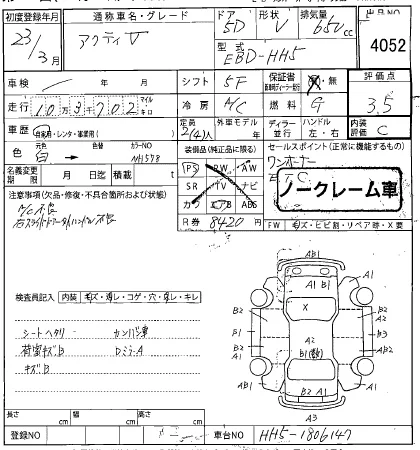 初度登録年月 通称車名・グレード ドア 形状 排気量 出品NO
23年 3月 アクティV 5D V 650cc 4052
型式
EBD-HH5
車検 / 年 月 シフト 5F 保証書 有・無 評価点
走行 10万3千702 マイル キロ 冷房 A/C 燃料 G 3.5
車歴 自家用・レンタ・事業用( ) 定員 2(4)人 外車モデル ディーラー 並行 ハンドル 左・右 内装評価 C
色 元色 白 カラーNO NH578
装備品(純正品に限る)
PS PW AW
SR TV ナビ
カワ エアB ABS
R券 8420円
セールスポイント(正常に機能するもの)
ワンオーナー
ETC
ノークレーム車
名義変更期限 月 日迄 積載 t
注意事項(欠品・修復・不具合箇所および状態)
A/C不良
右スライドドアアウターハンドル不良
FW キズ・ヒビ割・リペア跡・X要
検査員記入 内装 キズ・汚レ・コゲ・穴・浮レ・キレ
シートヘタリ カンバン車
荷室キズB Dミラ-A
キズB
AB1 A1 A1 B1 A1
B2 B2 A2
X
B1 A2 B3
B1(数)
B2 A2
A1 B2 A2 A1
A3
長さ cm 幅 cm 高さ cm
登録NO 車台NO HH5-1806147